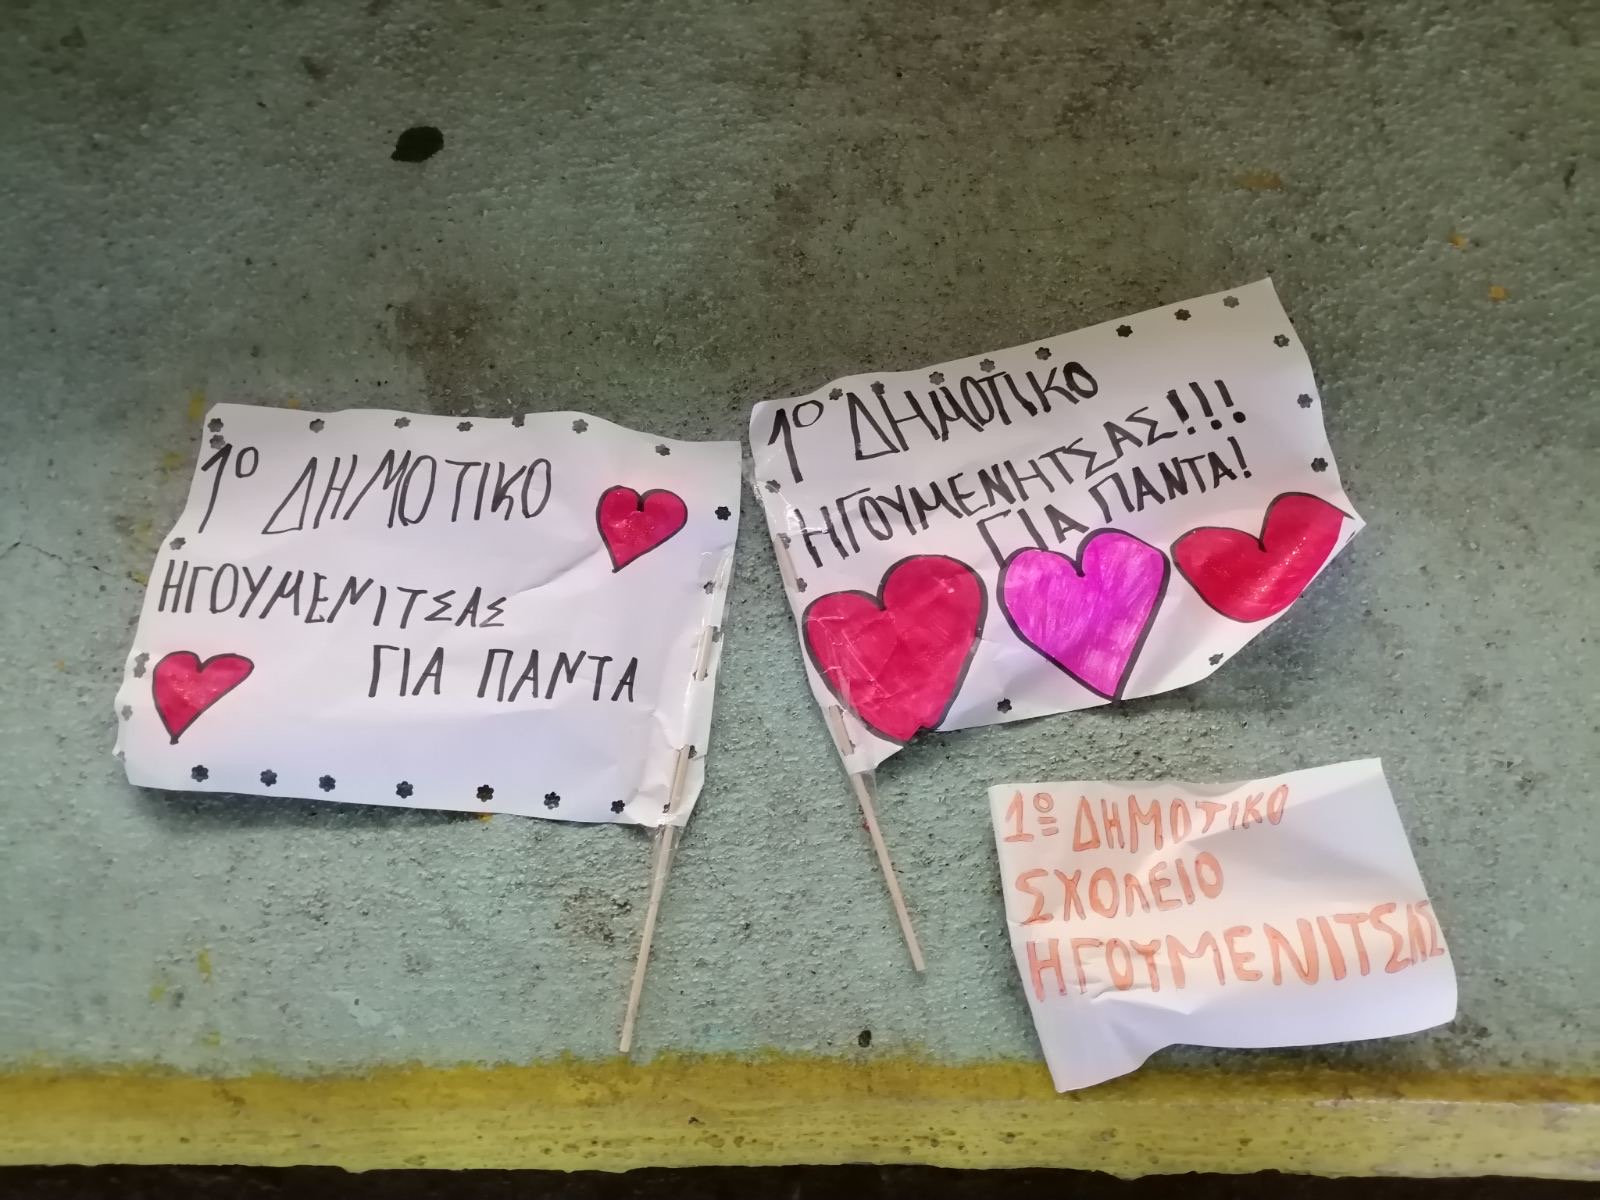 1º ΔΗΜΟΤΙΚΟ
ΗΓΟΥΜΕΝΙΤΣΑΣ
ΓΙΑ ΠΑΝΤΑ
1º ΔΗΜΟΤΙΚΟ
ΗΓΟΥΜΕΝΗΤΣΑΣ!!!
ΓΙΑ ΠΑΝΤΑ!
1º ΔΗΜΟΤΙΚΟ
ΣΧΟΛΕΙΟ
ΗΓΟΥΜΕΝΙΤΣΑΣ